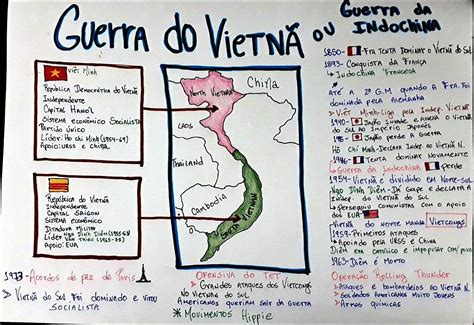 Guerra do Vietnã ou Guerra da Indochina
Việt Minh
República Democrática do Vietnã
Independente
Capital Hanói
Sistema econômico Socialista
Partido único
Líder: Ho Chi Minh (1954-69)
Apoio: URSS e China
República do Vietnã
Independente
Capital Saigon
Sistema econômico
Ditadura Militar
Líder Ngo Dinh Diem
Apoio: EUA
North Vietnam
China
Laos
Thailand
Cambodia
South Vietnam
1973-Acordos de paz de Paris
Vietnã do Sul foi dominado e virou
socialista
Ofensiva do Tet
Grandes ataques dos Vietcong
no Vietnam do Sul
Americanos queriam sair da guerra
Movimentos Hippie
1850- Fra tenta dominar o Vietnã do Sul
1893- Conquista da França
Indochina Francesa
Até a 2ªG.M quando a Fra. foi
dominada pela Alemanha
Viêt Minh-Liga pela Indep. Vietnã
1940- Japão invade e anexa o Vietnã
do Sul ao Império Japonês
1945- Japão perde a guerra
Hô Chi Minh-Declara Indep. ao Vietnã N.
1946- tenta dominar novamente
Guerra da Indochina perde
1954-Vietnã é dividido em Norte-Sul
Ngo Dinh Diêm-Dá golpe e declara a
Indep. do Vietnã do Sul
Perseguiu comunista com o apoio
dos EUA
Vietnã do Norte manda Vietcongs
1957-Primeiros ataques
Apoiado pela URSS e China
Diêm era católico e impopular com/
1963-Diêm é morto
Operação Rolling Thunder
Ataques e bombardeios ao Vietnã N.
Soldados americanos muito jovens
Armas químicas